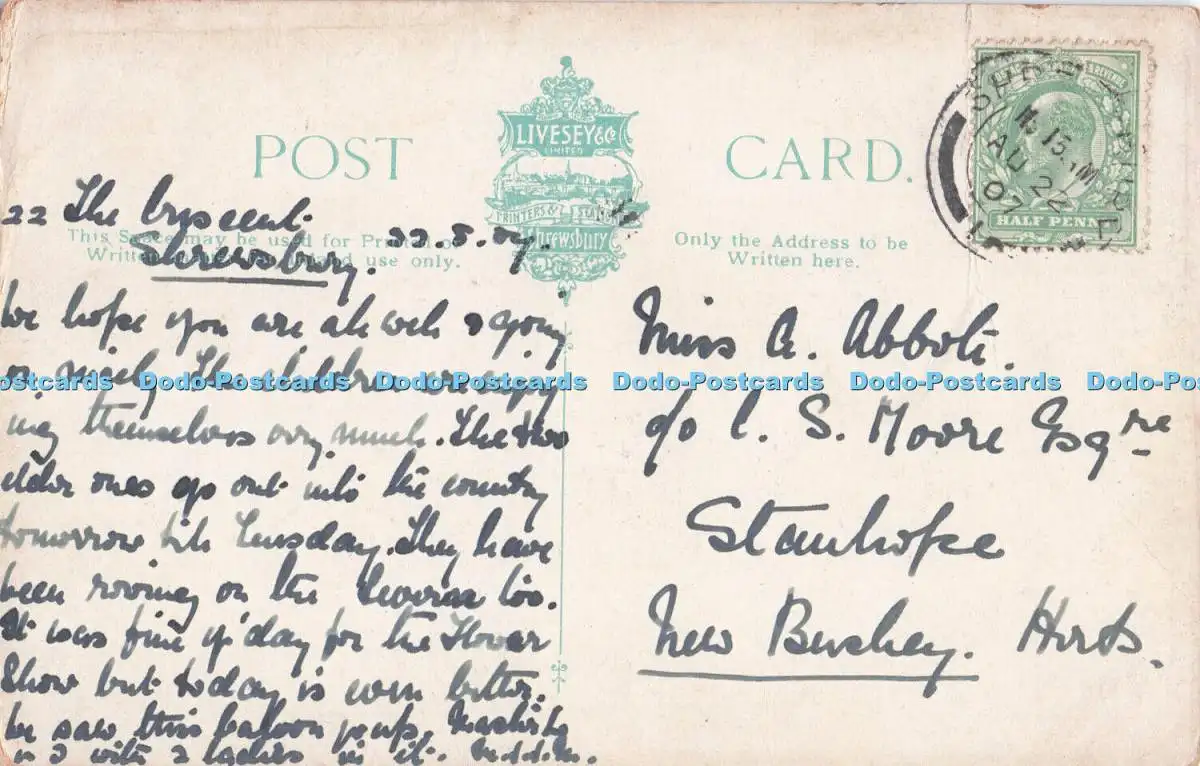 POST CARD.
LIVESEY & Co
LIMITED
PRINTERS &
Shrewsbury
SHREWSBURY
11.15 AM
AU 22
07
HALF PENNY
This Space may be used for Printed or
Written Inland use only.
Only the Address to be
Written here.
22 The Crescent
Shrewsbury. 22.8.07.
We hope you are all well & going
on nicely. The children are enjoy
ing themselves very much. The two
elder ones go out into the country
tomorrow till Tuesday. They have
been rowing on the Severn too.
It was fine y'day for the Flower
Show but today is even better.
We saw this baloon go up.
with 2 ladies in it.
Miss A. Abbott.
c/o C. S. Moore Esqre
Stanhope
New Bushey. Herts.
Dodo-Postcards Dodo-Postcards Dodo-Postcards Dodo-Postcards Dodo-Postcards Dodo-Postcards